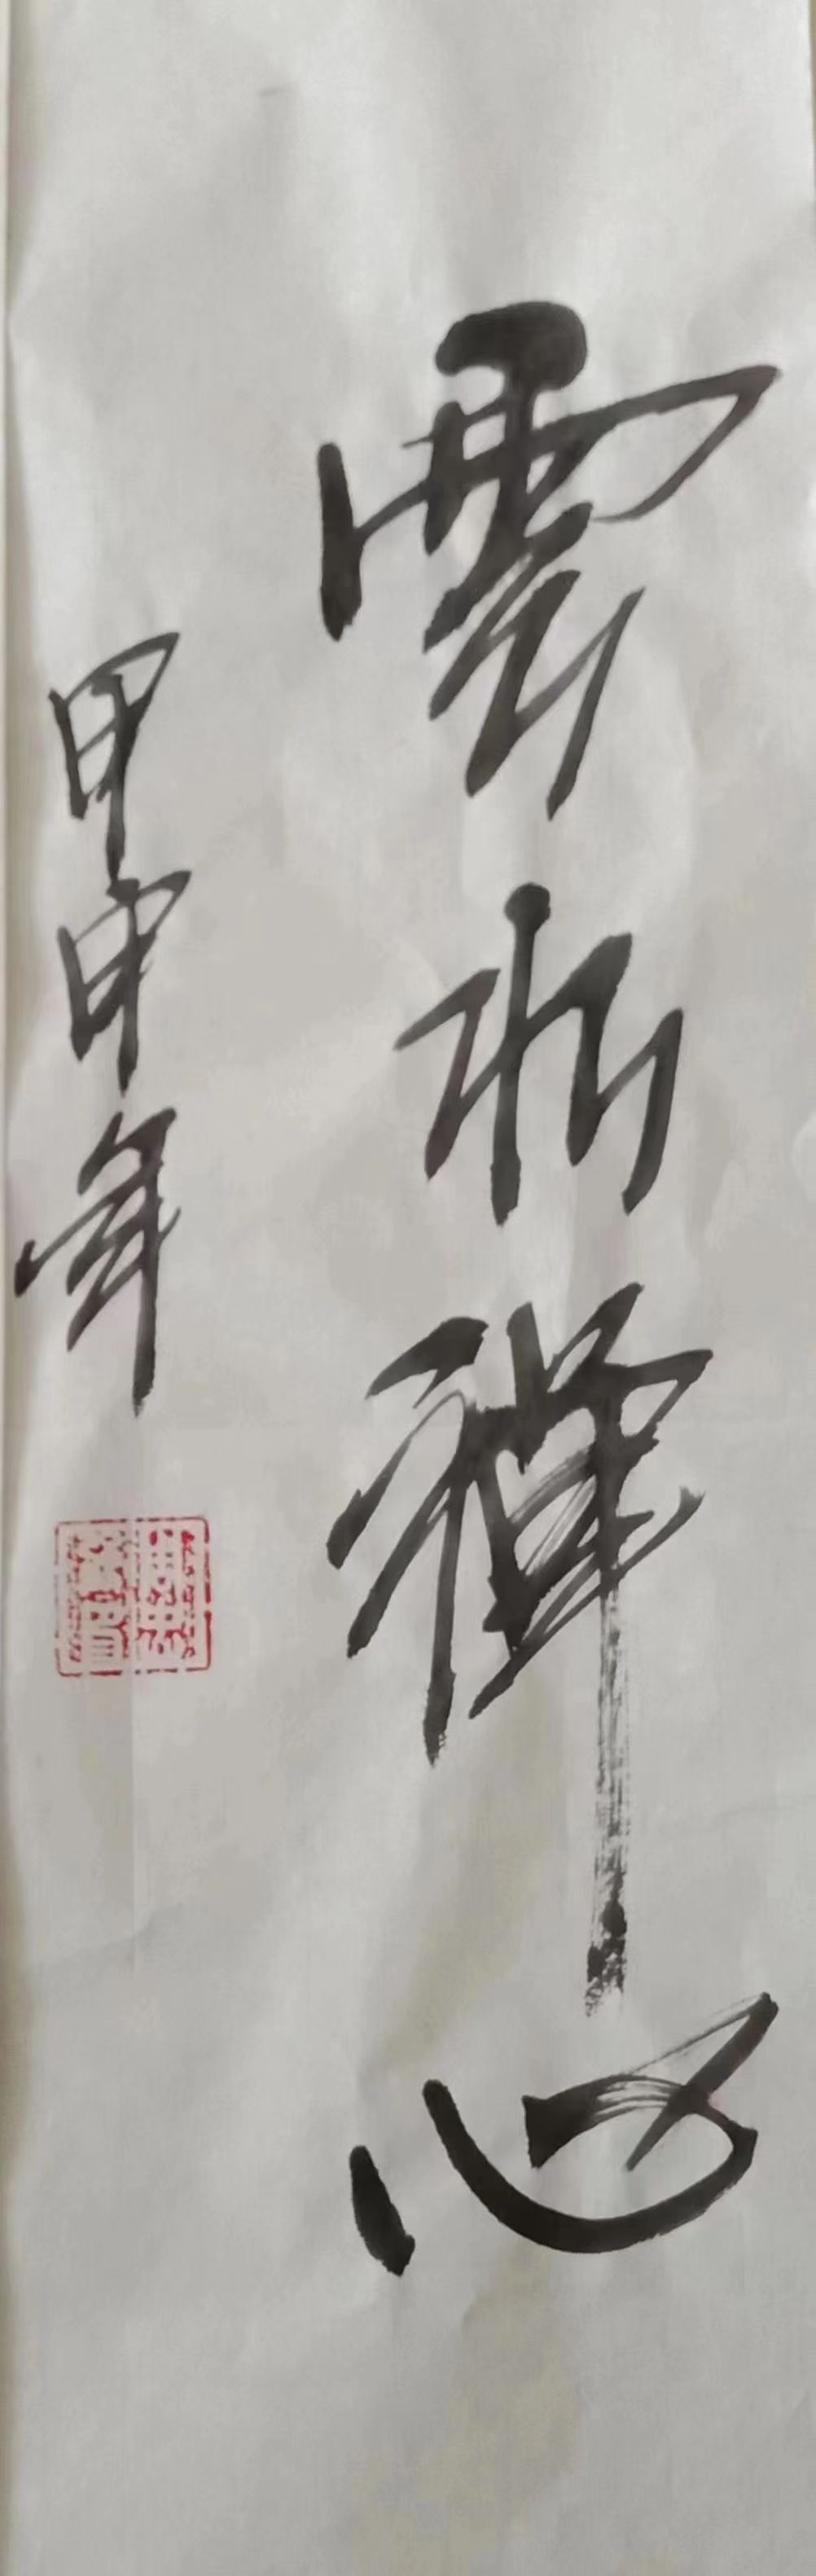 雲水禪心
甲申年